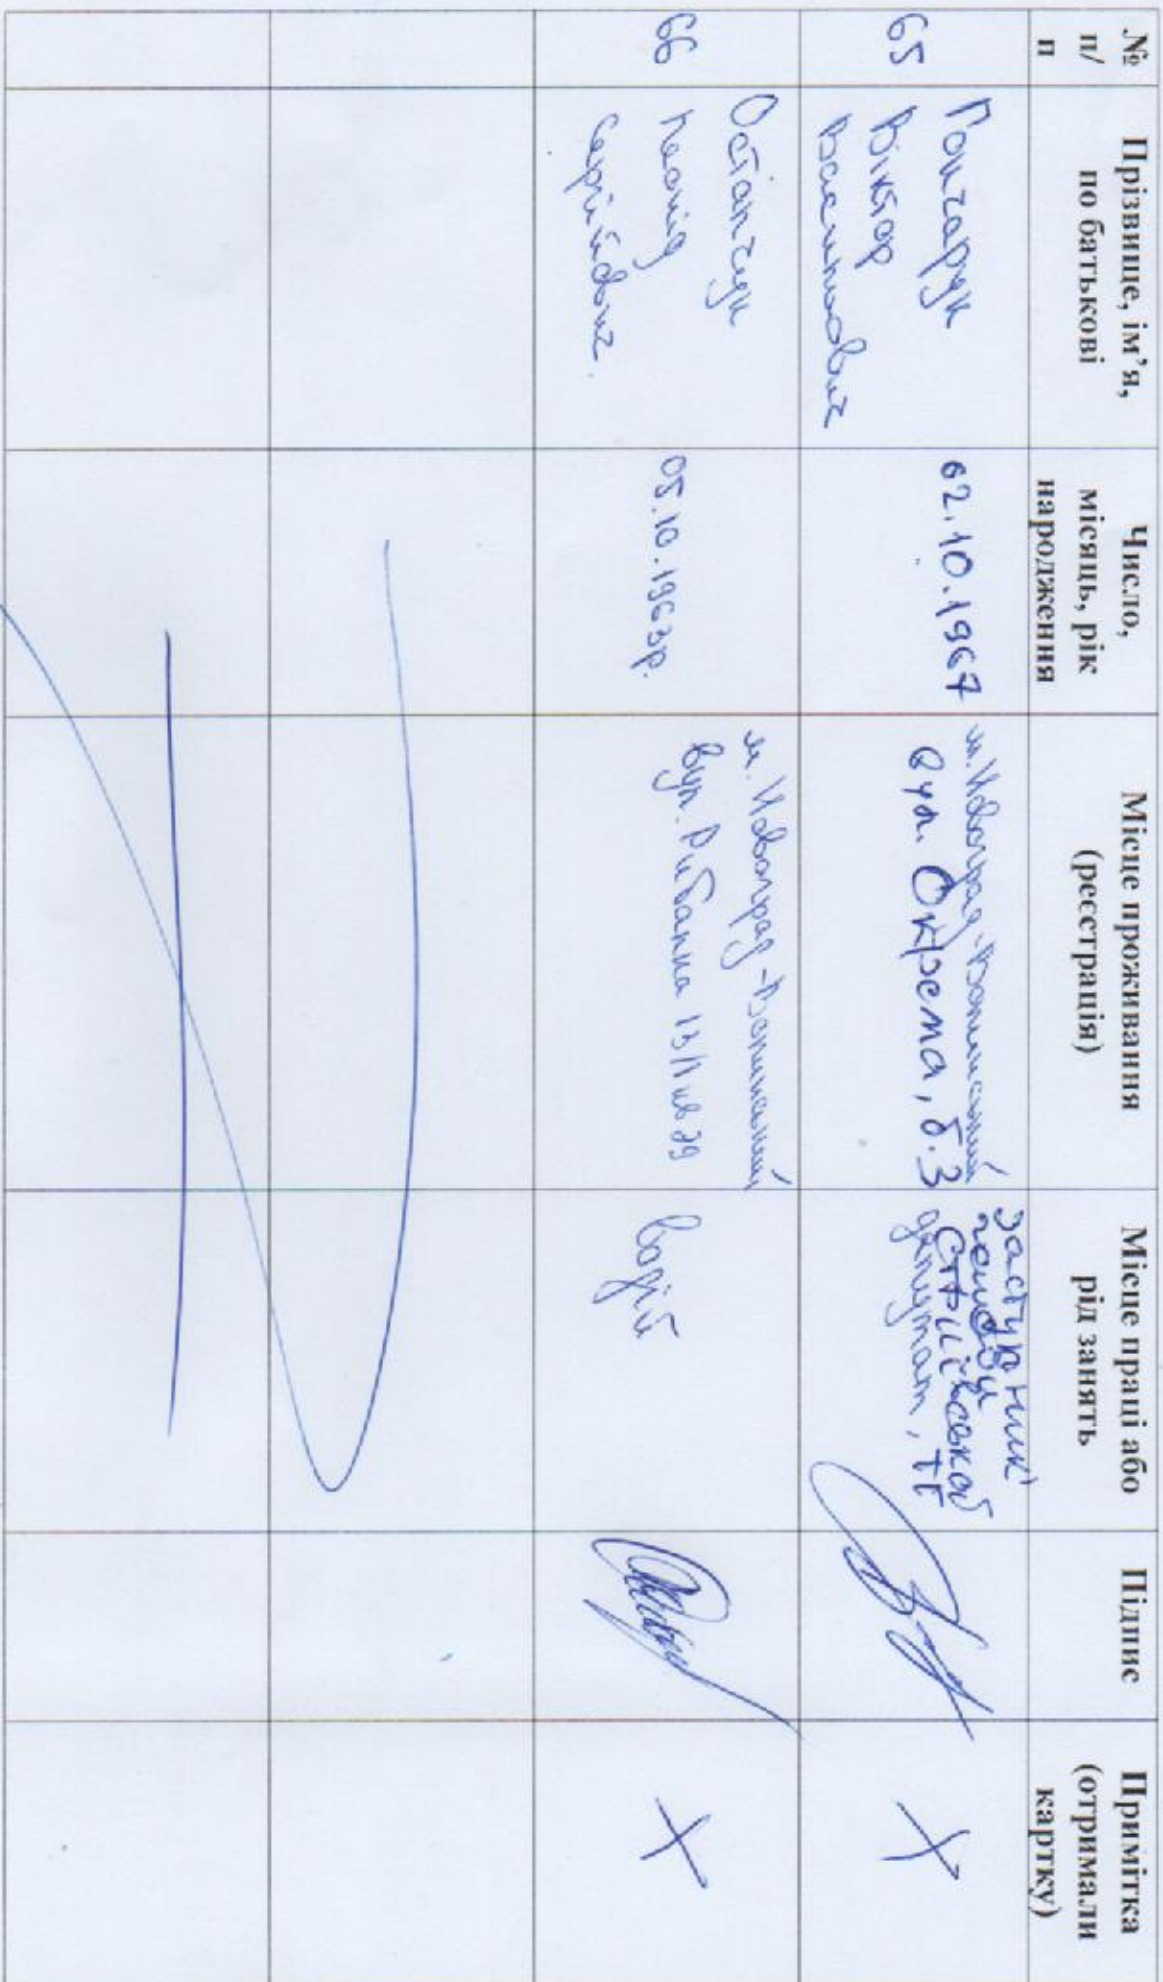 № п/п
Прізвище, ім’я, по батькові
Число, місяць, рік народження
Місце проживання (реєстрація)
Місце праці або рід занять
Підпис
Примітка (отримали картку)
65
Гончарук
Віктор
Васильович
02.10.1967
м. Новоград-Волинський
вул. Окрема, б. 3
заступник
голови
Стриївської
депутат, ТГ
X
66
Остапчук
Леонід
Сергійович.
05.10.1963р.
м. Новоград-Волинський
вул. Рибалка 13/1 кв 29
Водій
X